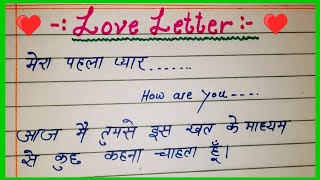 -: Love Letter :-
मेरा पहला प्यार.......
How are you----.
आज मै तुमसे इस खत के माध्यम
से कुछ कहना चाहता हूँ।